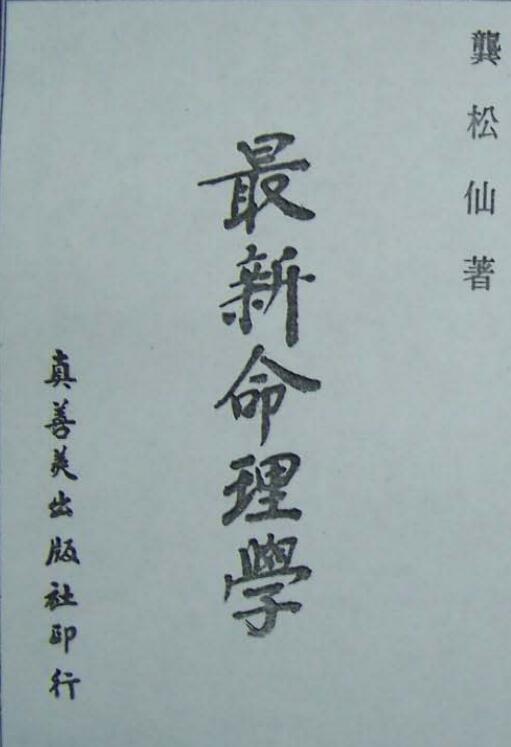 龔松仙著
最新命理學
真善美出版社印行